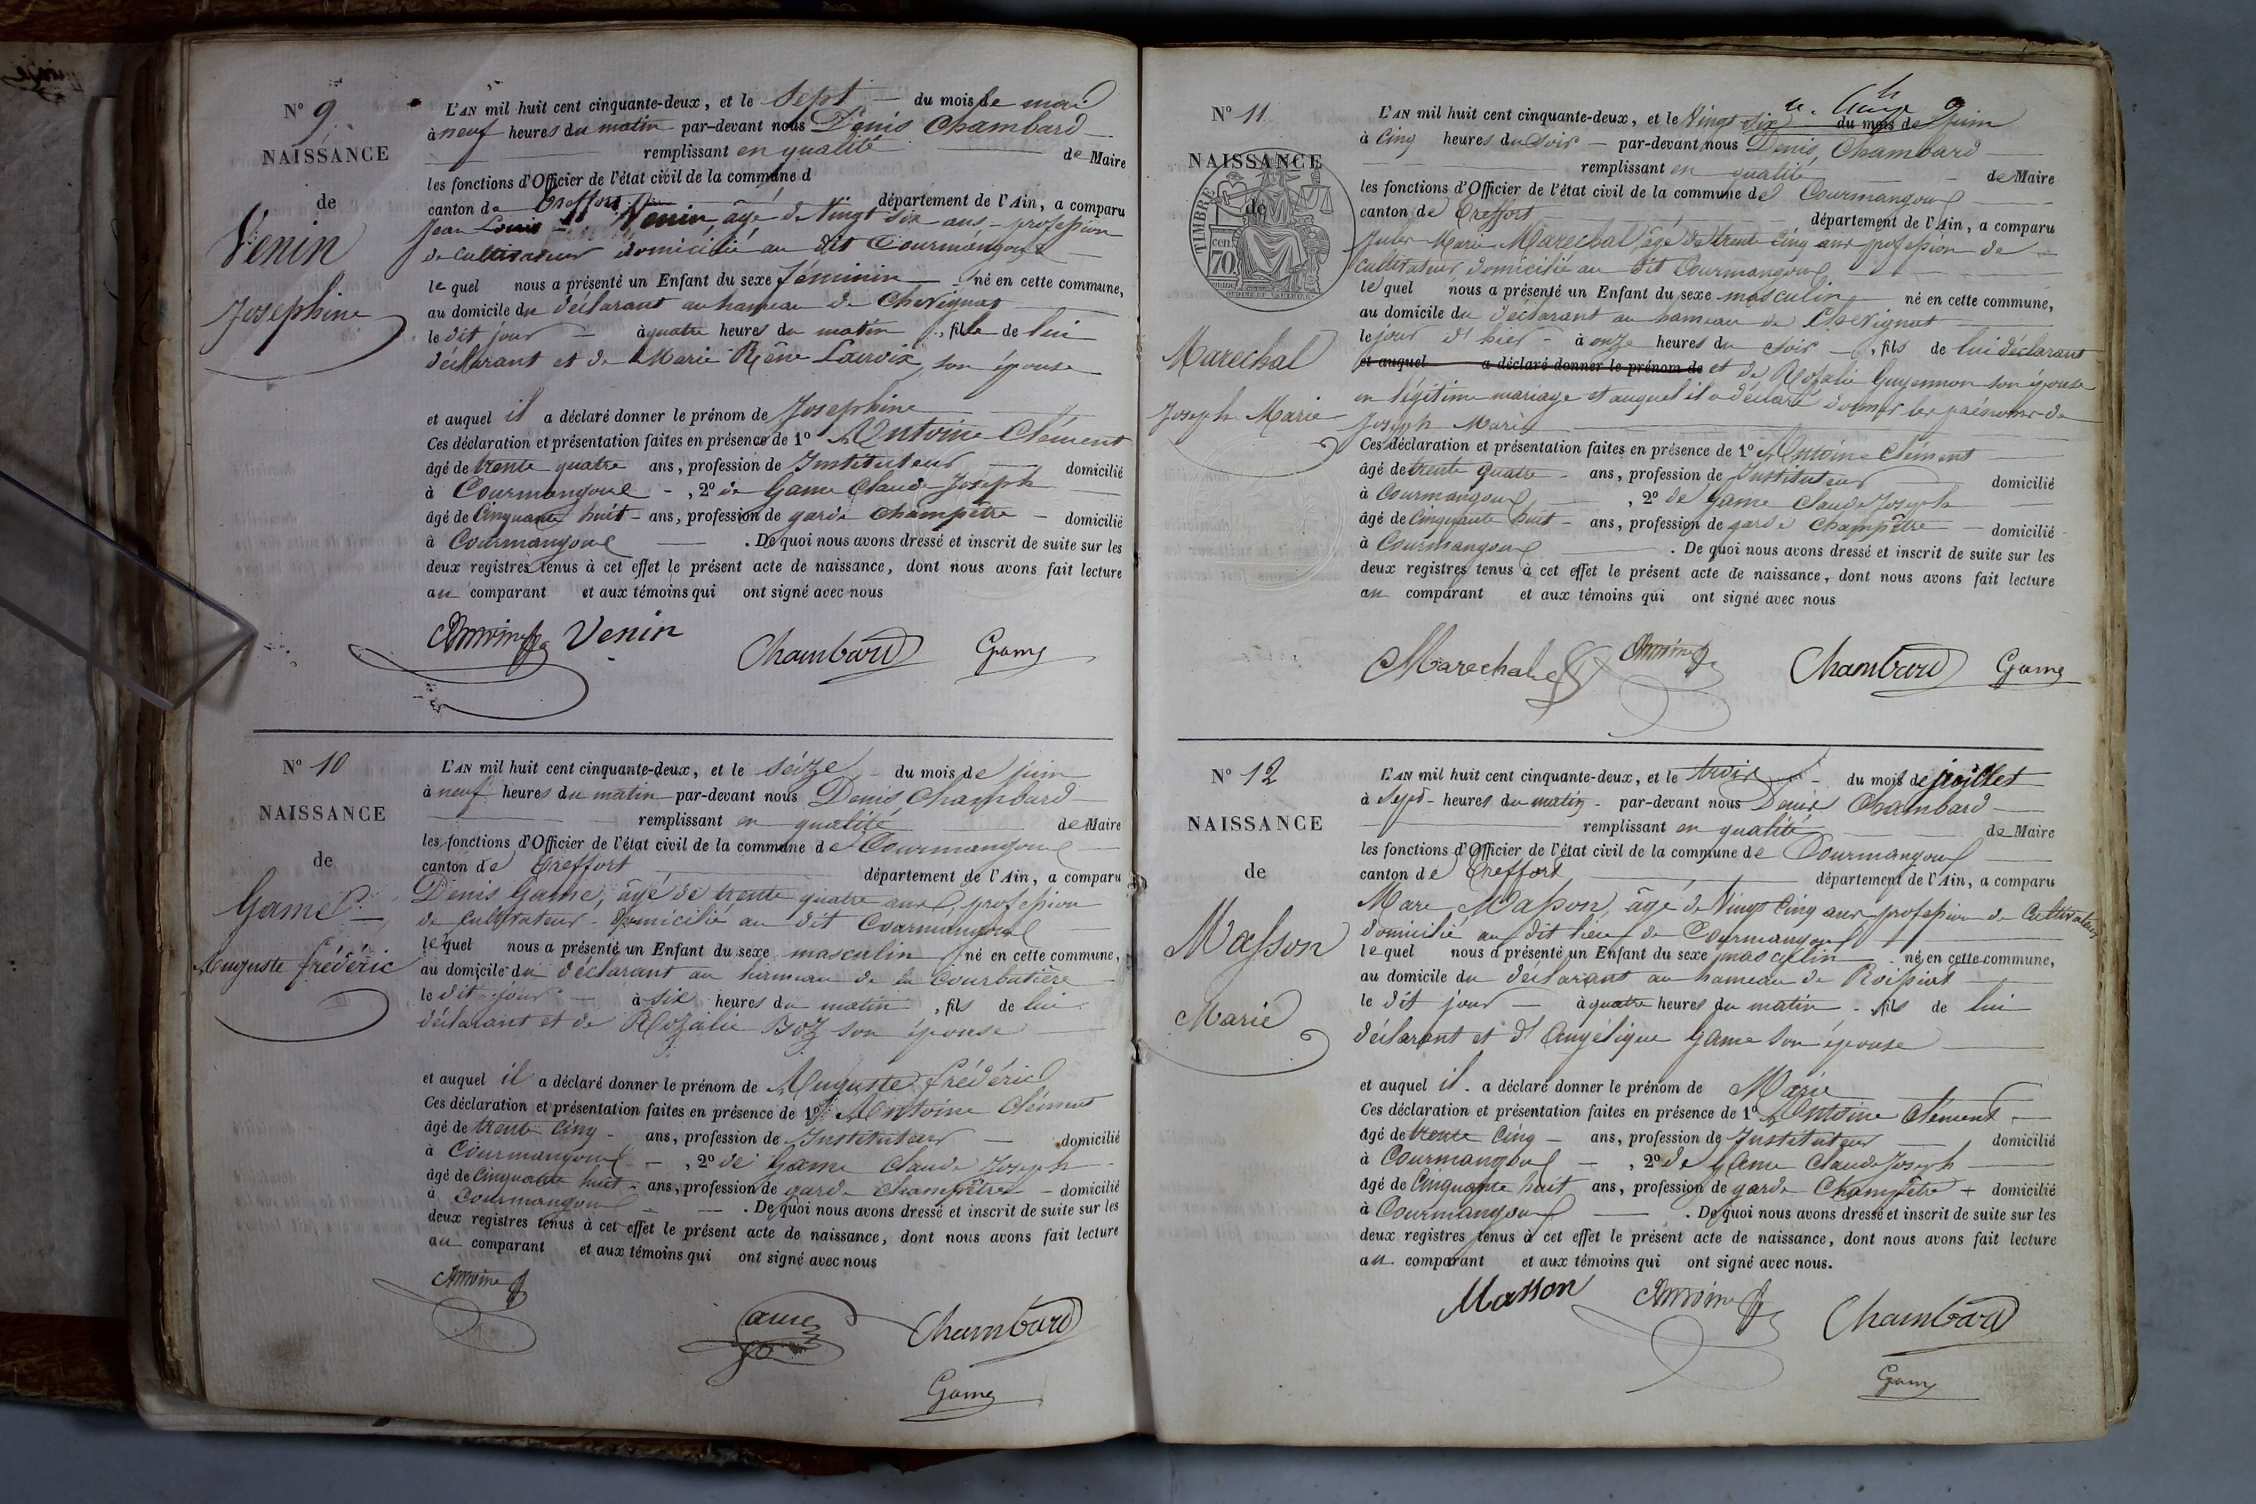 N° 9
NAISSANCE
de
Venin
Josephine
L'AN mil huit cent cinquante-deux, et le Sept — du mois de mai
à neuf heures du matin par-devant nous Denis Chambard —
remplissant en qualité — de Maire
les fonctions d'Officier de l'état civil de la commune d
canton de Treffort département de l'Ain, a comparu
Jean Louis Venin âgé de Vingt six ans, profession
de cultivateur domicilié au dit Courmangoux —
lequel nous a présenté un Enfant du sexe féminin — né en cette commune,
au domicile du déclarant au hameau de Chevignat
le dit jour — à quatre heures du matin, fille de lui
déclarant et de Marie Rêne Lacroix son épouse
et auquel il a déclaré donner le prénom de Josephine
Ces déclaration et présentation faites en présence de 1° Antoine Clément
âgé de trente quatre ans, profession de Instituteur — domicilié
à Courmangoux -, 2° de Game Claude Joseph —
âgé de Cinquante huit - ans, profession de garde champêtre — domicilié
à Courmangoux — . De quoi nous avons dressé et inscrit de suite sur les
deux registres tenus à cet effet le présent acte de naissance, dont nous avons fait lecture
au comparant et aux témoins qui ont signé avec nous
Antoine Venin Chambard Game
N° 10
NAISSANCE
de
Game
Auguste frédéric
L'AN mil huit cent cinquante-deux, et le Seize — du mois de juin
à neuf heures du matin par-devant nous Denis Chambard —
remplissant en qualité — de Maire
les fonctions d'Officier de l'état civil de la commune de Courmangoux —
canton de Treffort département de l'Ain, a comparu
Denis Game, âgé de trente quatre ans, profession
de cultivateur domicilié au dit Courmangoux
lequel nous a présenté un Enfant du sexe masculin, né en cette commune,
au domicile du déclarant au hameau de la Courbatière
le dit jour — à six heures du matin, fils de lui
déclarant et de Rozalie Boz son épouse —
et auquel il a déclaré donner le prénom de Auguste frédéric
Ces déclaration et présentation faites en présence de 1° Antoine Clément
âgé de trente cinq - ans, profession de Instituteur — domicilié
à Courmangoux -, 2° de Game Claude Joseph
âgé de Cinquante huit - ans, profession de garde Champêtre — domicilié
à Courmangoux — . De quoi nous avons dressé et inscrit de suite sur les
deux registres tenus à cet effet le présent acte de naissance, dont nous avons fait lecture
au comparant et aux témoins qui ont signé avec nous
Antoine
Game Chambard
Game
N° 11
NAISSANCE
de
TIMBRE
70 cen
Marechal
Joseph Marie
L'AN mil huit cent cinquante-deux, et le Vingt six du mois de Juin
à Cinq heures du soir — par-devant nous Denis Chambard —
remplissant en qualité — de Maire
les fonctions d'Officier de l'état civil de la commune de Courmangoux
canton de Treffort département de l'Ain, a comparu
Jules Marie Marechal âgé de trente cinq ans profession de
cultivateur domicilié au dit Courmangoux
lequel nous a présenté un Enfant du sexe masculin — né en cette commune,
au domicile du déclarant au hameau de Chevignat
le jour d'hier - à onze heures du soir —, fils de lui déclarant
et auquel a déclaré donner le prénom de et de Rozalie Guyennon son épouse
en légitime mariage et auquel il a déclaré donner les prénoms de
Joseph Marie
Ces déclaration et présentation faites en présence de 1° Antoine Clément
âgé de trente quatre - ans, profession de Instituteur — domicilié
à Courmangoux, 2° de Game Claude Joseph —
âgé de Cinquante huit - ans, profession de garde champêtre — domicilié
à Courmangoux — . De quoi nous avons dressé et inscrit de suite sur les
deux registres tenus à cet effet le présent acte de naissance, dont nous avons fait lecture
au comparant et aux témoins qui ont signé avec nous
Marechal Antoine Chambard Game
N° 12
NAISSANCE
de
Masson
Marie
L'AN mil huit cent cinquante-deux, et le trois — du mois de juillet
à Sept - heures du matin - par-devant nous Denis Chambard —
remplissant en qualité — de Maire
les fonctions d'Officier de l'état civil de la commune de Courmangoux —
canton de Treffort département de l'Ain, a comparu
Marc Masson âgé de Vingt Cinq ans profession de Cultivateur
domicilié au dit lieu de Courmangoux
lequel nous a présenté un Enfant du sexe masculin né en cette commune,
au domicile du déclarant au hameau de Roissiat
le dit jour — à quatre heures du matin - fils de lui
déclarant et d'Angélique Game son épouse —
et auquel il a déclaré donner le prénom de Marie
Ces déclaration et présentation faites en présence de 1° Antoine Clément —
âgé de trente Cinq — ans, profession de Instituteur — domicilié
à Courmangoux -, 2° de Game Claude Joseph —
âgé de Cinquante huit ans, profession de garde Champêtre — domicilié
à Courmangoux — . De quoi nous avons dressé et inscrit de suite sur les
deux registres tenus à cet effet le présent acte de naissance, dont nous avons fait lecture
au comparant et aux témoins qui ont signé avec nous.
Masson Antoine Chambard
Game